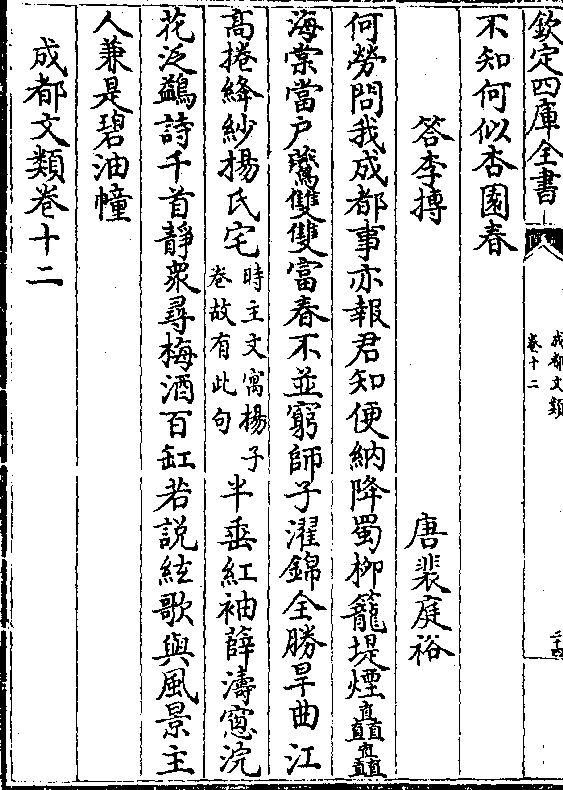 欽定四庫全書
成都文類
卷十二
二十四
不知何似杏園春
答李摶
唐裴庭裕
何勞問我成都事亦報君知便納降蜀柳籠堤煙矗矗
海棠當戶鷰雙雙富春不並窮師子濯錦全勝旱曲江
高捲絳紗揚氏宅時主文寓楊子卷故有此句半垂紅袖薛濤窓浣
花泛鷁詩千首靜衆尋梅酒百缸若說絃歌與風景主
人兼是碧油幢
成都文類卷十二